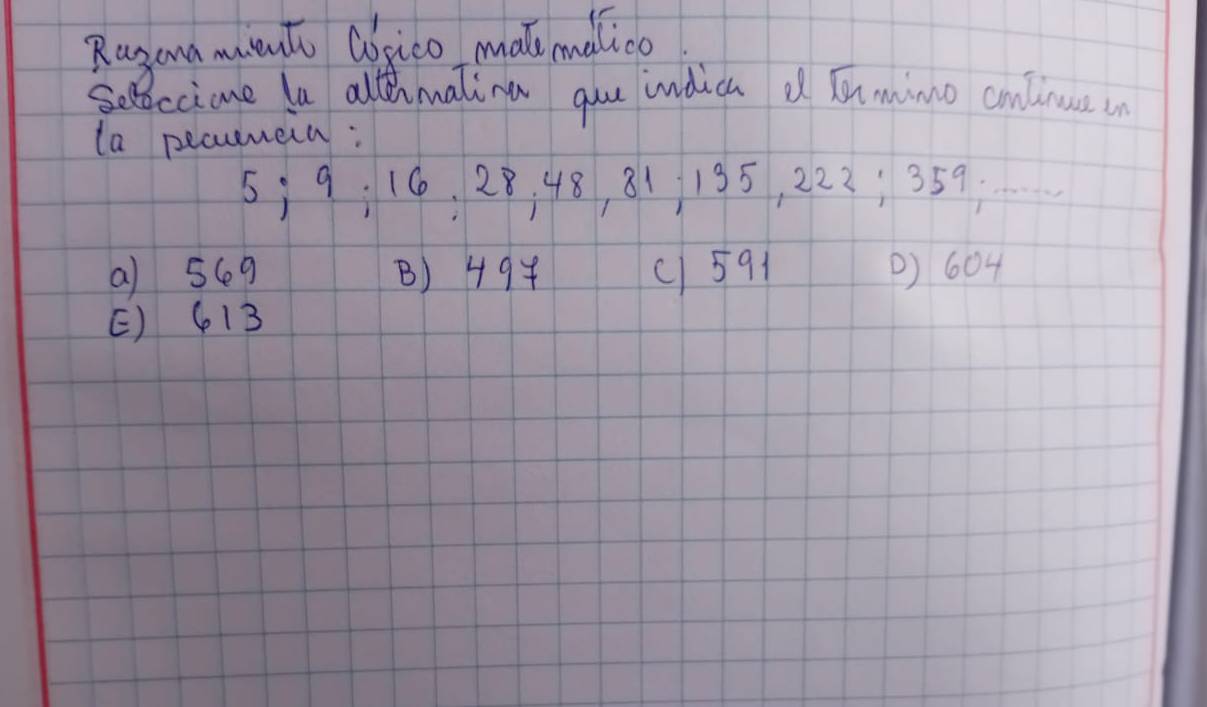 Razonamiento lógico matemático.
Seleccione la alternativa que indica el termino continue en
la secuencia:
5; 9; 16; 28; 48, 81; 135, 222; 359; ......
a) 569 B) 497 C) 591 D) 604
E) 613